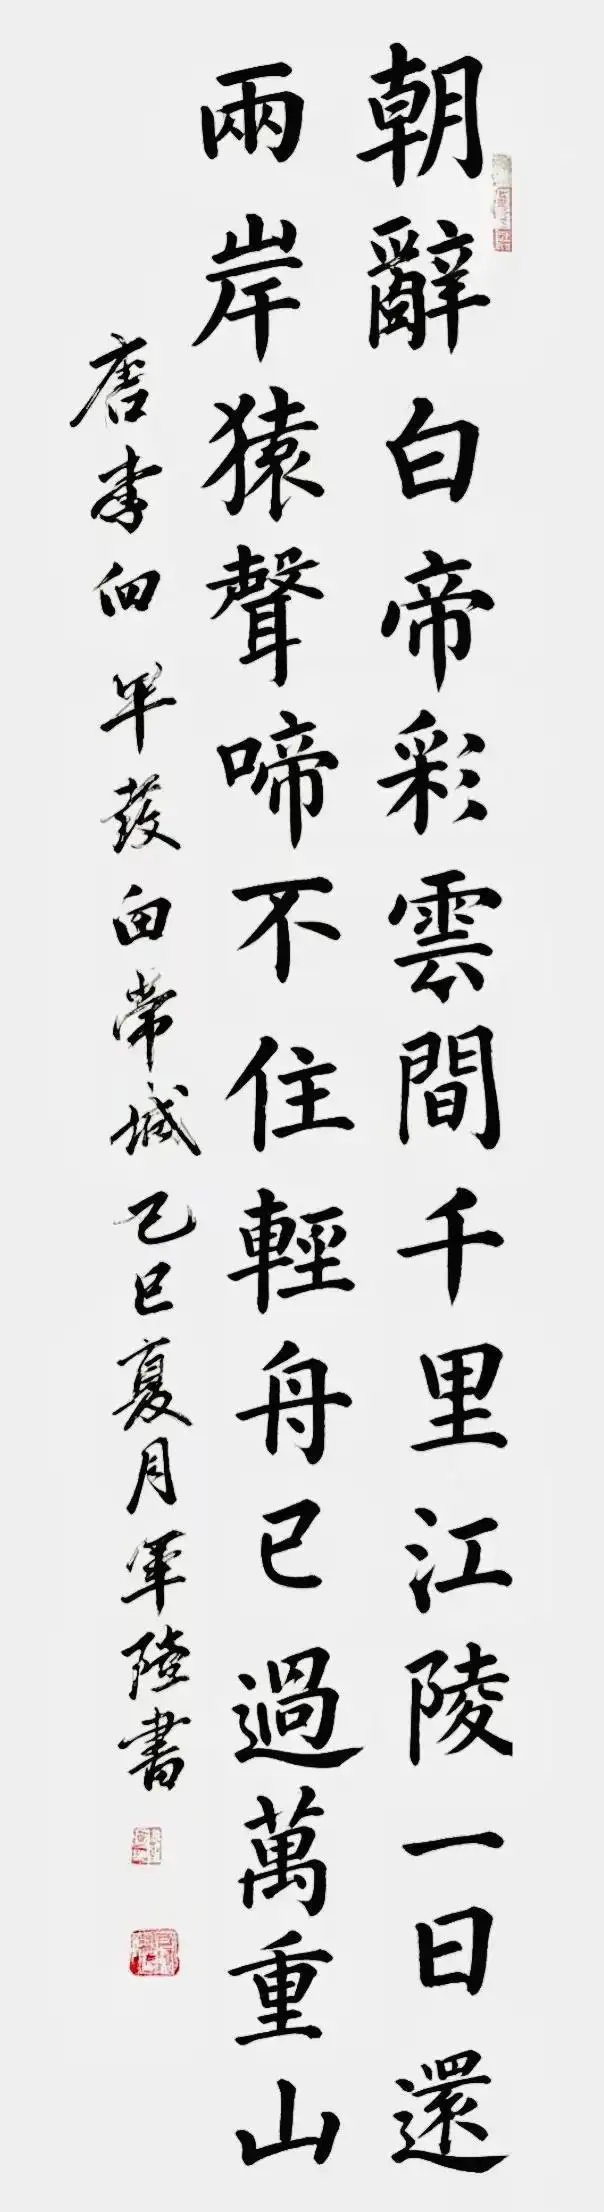 朝辭白帝彩雲間千里江陵一日還
兩岸猿聲啼不住輕舟已過萬重山
唐李白早發白帝城乙巳夏月軍陸書